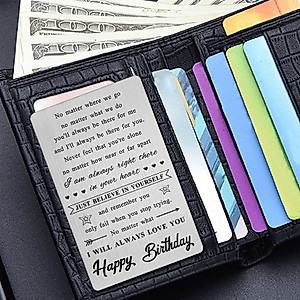 No matter where we go
no matter what we do
you'll always be there for me
and I'll always be there for you.
Never feel that you're alone
no matter how near or far apart
I am always right there
in your heart
JUST BELIEVE IN YOURSELF
and remember you
only fail when you stop trying.
No matter what
I WILL ALWAYS LOVE YOU
Happy Birthday